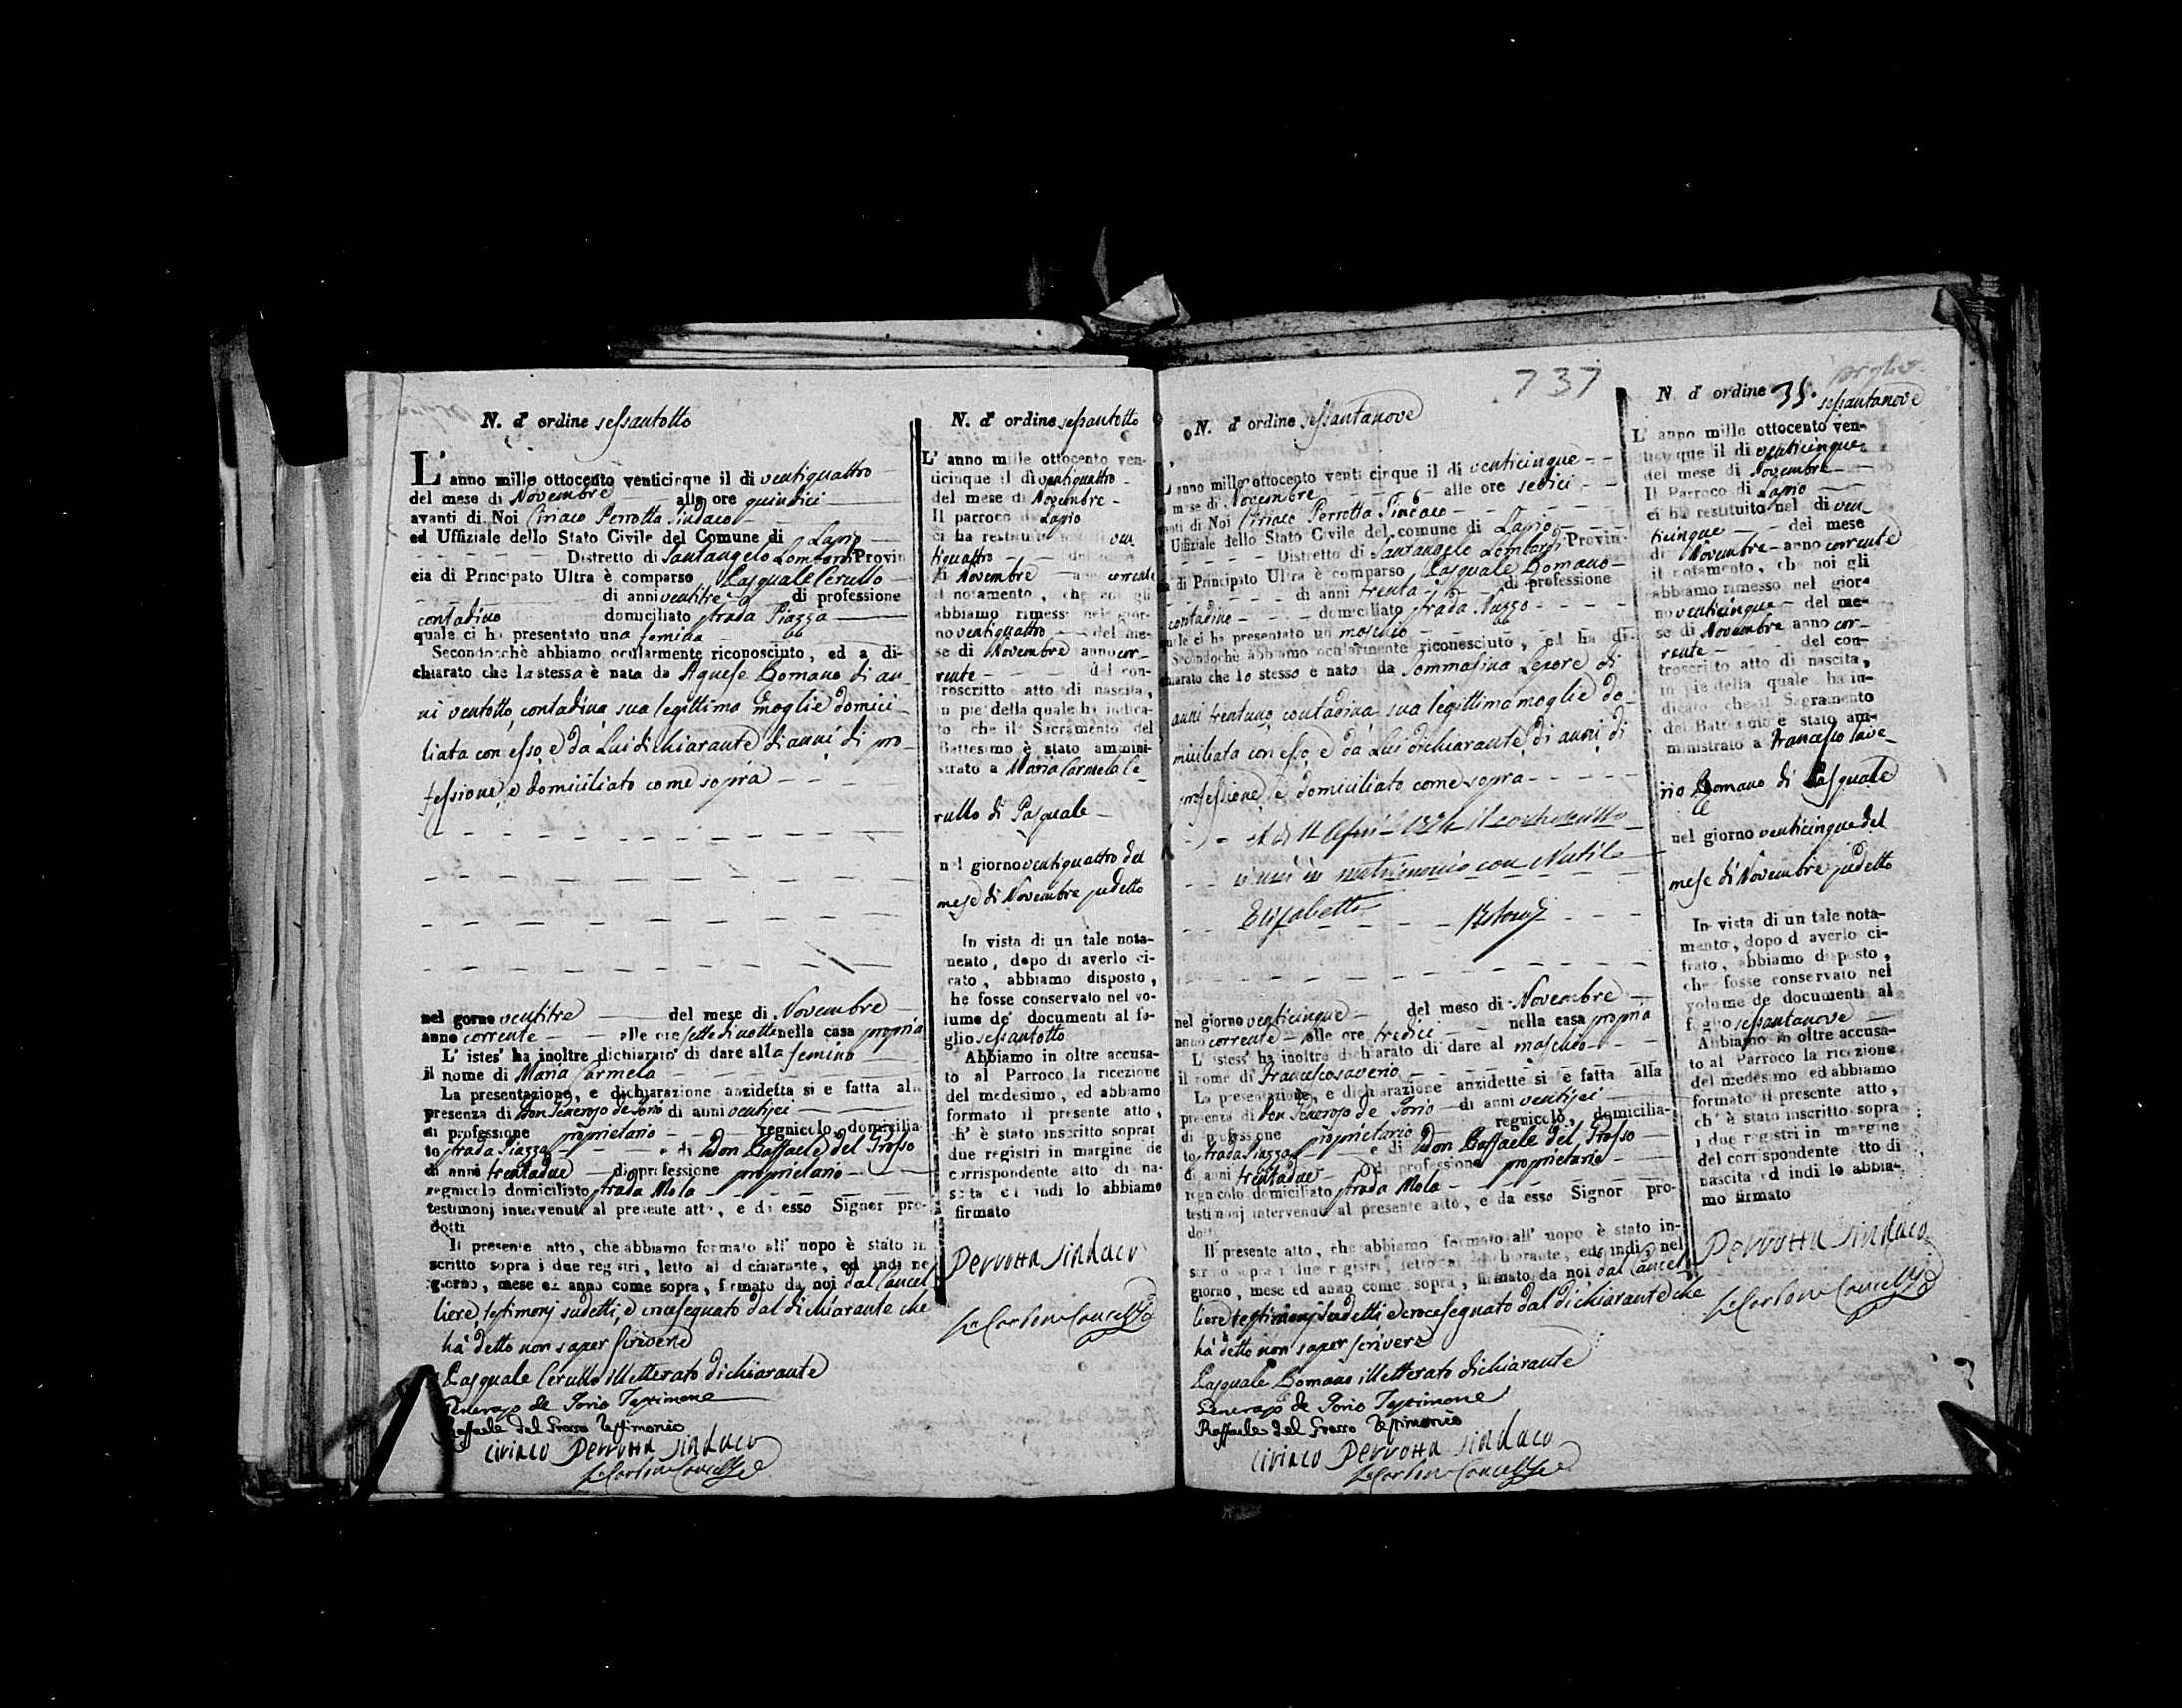 N. d' ordine sessantotto
L' anno mille ottocento venticinque il di ventiquattro
del mese di Novembre alle ore quindici
avanti di Noi Ciriaco Perrotta Sindaco
ed Uffiziale dello Stato Civile del Comune di Lapio
Distretto di Santangelo Lombardi Provin
cia di Principato Ultra è comparso Pasquale Cerullo
di anni ventitre di professione
contadino domiciliato strada Piazza
quale ci ha presentato una femina
Secondochè abbiamo ocularmente riconosciuto, ed a di-
chiarato che la stessa è nata da Agnese Romano di an-
ni ventotto contadina sua legittima moglie domici-
liata con esso, e da Lui dichiarante di anni di pro-
fessione, e domiciliato come sopra
nel gorno ventitre del mese di Novembre
anno corrente alle ore sette di notte nella casa propria
L' istes' ha inoltre dichiarato di dare alla femina
il nome di Maria Carmela
La presentazione, e dichiarazione anzidetta si e fatta alla
presenza di Don Generoso de Iorio di anni ventisei
di professione proprietario regnicolo, domicilia-
to strada Piazza e di Don Raffaele del Grosso
di anni trentadue di professione proprietario
regnicolo domiciliato strada Mola
testimonj intervenuti al presente atto, e di esso Signor pro-
dotti
Il presente atto, che abbiamo formato all' uopo è stato in
scritto sopra i due registri, letto al dichiarante, ed indi ne
giorno, mese ed anno come sopra, firmato da noi dal Cancel
liere, testimonj sudetti, e crocesegnato dal dichiarante che
ha detto non saper scrivere
Pasquale Cerullo illetterato dichiarante
Generoso de Iorio Testimone
Raffaele del Grosso Testimonio
Ciriaco Perrotta Sindaco
N. d' ordine sessantotto
L' anno mille ottocento ven-
ticinque il dì ventiquattro
del mese di Novembre
Il parroco di Lapio
ci ha restituito nel di ven
tiquattro del mese
di Novembre anno corrente
il notamento, che noi gli
abbiamo rimesso nel gior-
no ventiquattro del me-
se di Novembre anno cor-
rente del con-
troscritto atto di nascita,
in pie' della quale ha indica-
to che il Sacramento del
Battesimo è stato ammini-
strato a Maria Carmela Ce
rullo di Pasquale
nel giorno ventiquattro del
mese di Novembre sudetto
In vista di un tale nota-
mento, dopo di averlo ci-
frato, abbiamo disposto,
che fosse conservato nel vo-
lume de' documenti al fo-
glio sessantotto
Abbiamo in oltre accusa-
to al Parroco la ricezione
del medesimo, ed abbiamo
formato il presente atto,
ch' è stato inscritto sopra i
due registri in margine de
corrispondente atto di na-
scita ed indi lo abbiamo
firmato
Perrotta Sindaco
737
N. d' ordine sessantanove
L' anno mille ottocento venti cinque il di venticinque
del mese di Novembre alle ore sedici
avanti di Noi Ciriaco Perrotta Sindaco
Uffiziale dello Stato Civile del comune di Lapio
Distretto di Santangelo Lombardi Provin-
cia di Principato Ultra è comparso Pasquale Romano
di anni trenta di professione
contadino domiciliato strada Nuzzo
quale ci ha presentato un maschio
Secondochè abbiamo ocularmente riconosciuto, ed ha di-
chiarato che lo stesso è nato da Tommasina Lepore di
anni trentuno, contadina sua legittima moglie do-
miciliata con esso, e da Lui dichiarante, di anni, di
professione, e domiciliato come sopra
unì in matrimonio con
Elisabetta
nel giorno venticinque del mese di Novembre
anno corrente alle ore tredici nella casa propria
L' istess' ha inoltre dichiarato di dare al maschio
il nome di Francescosaverio
La presentazione, e dichiarazione anzidette si è fatta alla
presenza di Don Generoso de Iorio di anni ventisei
di professione proprietario regnicolo, domicilia-
to strada Piazza e di Don Raffaele del Grosso
di anni trentadue di professione proprietario
regnicolo domiciliato strada Mola
testimonj intervenuti al presente atto, e da esso Signor pro-
dotti
Il presente atto, che abbiamo formato all' uopo è stato in-
scritto sopra i due registri, letto al dichiarante, ed indi nel
giorno, mese ed anno come sopra, firmato da noi dal Cancel
liere testimonj sudetti, e crocesegnato dal dichiarante che
ha detto non saper scrivere
Pasquale Romano illetterato dichiarante
Generoso de Iorio Testimone
Raffaele del Grosso Testimonio
Ciriaco Perrotta Sindaco
N. d' ordine sessantanove
L' anno mille ottocento ven-
ticinque il di venticinque
del mese di Novembre
Il Parroco di Lapio
ci ha restituito nel di ven
ticinque del mese
di Novembre anno corrente
il notamento, che noi gli
abbiamo rimesso nel gior-
no venticinque del me-
se di Novembre anno cor-
rente del con-
troscritto atto di nascita,
in pie della quale ha in-
dicato che il Sagramento
del Battesimo è stato am-
ministrato a Francesco Save-
rio Romano di Pasquale
nel giorno venticinque del
mese di Novembre sudetto
In vista di un tale nota-
mento, dopo d averlo ci-
frato, abbiamo disposto,
che fosse conservato nel
volume de documenti al
foglio sessantanove
Abbiamo in oltre accusa-
to al Parroco la ricezione
del medesimo ed abbiamo
formato il presente atto,
ch' è stato inscritto sopra
i due registri in margine
del corrispondente atto di
nascita ed indi lo abbia-
mo firmato
Perrotta Sindaco